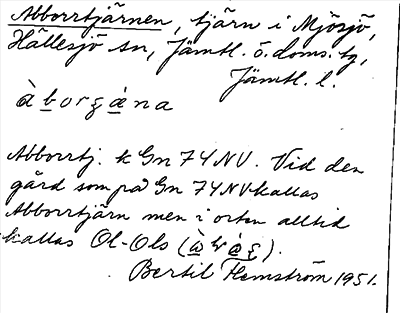 Abborrtjärnen, tjärn i Mjösjö,
Hällesjö sn, Jämtl. ö. doms. tg,
Jämtl. l.
Abborrtj. k Gn 7YNV. Vid den
gård som på Gn 7YNV kallas
Abborrtjärn men i orten alltid
kallas Ol-Ols
Bertil Flemström 1951.